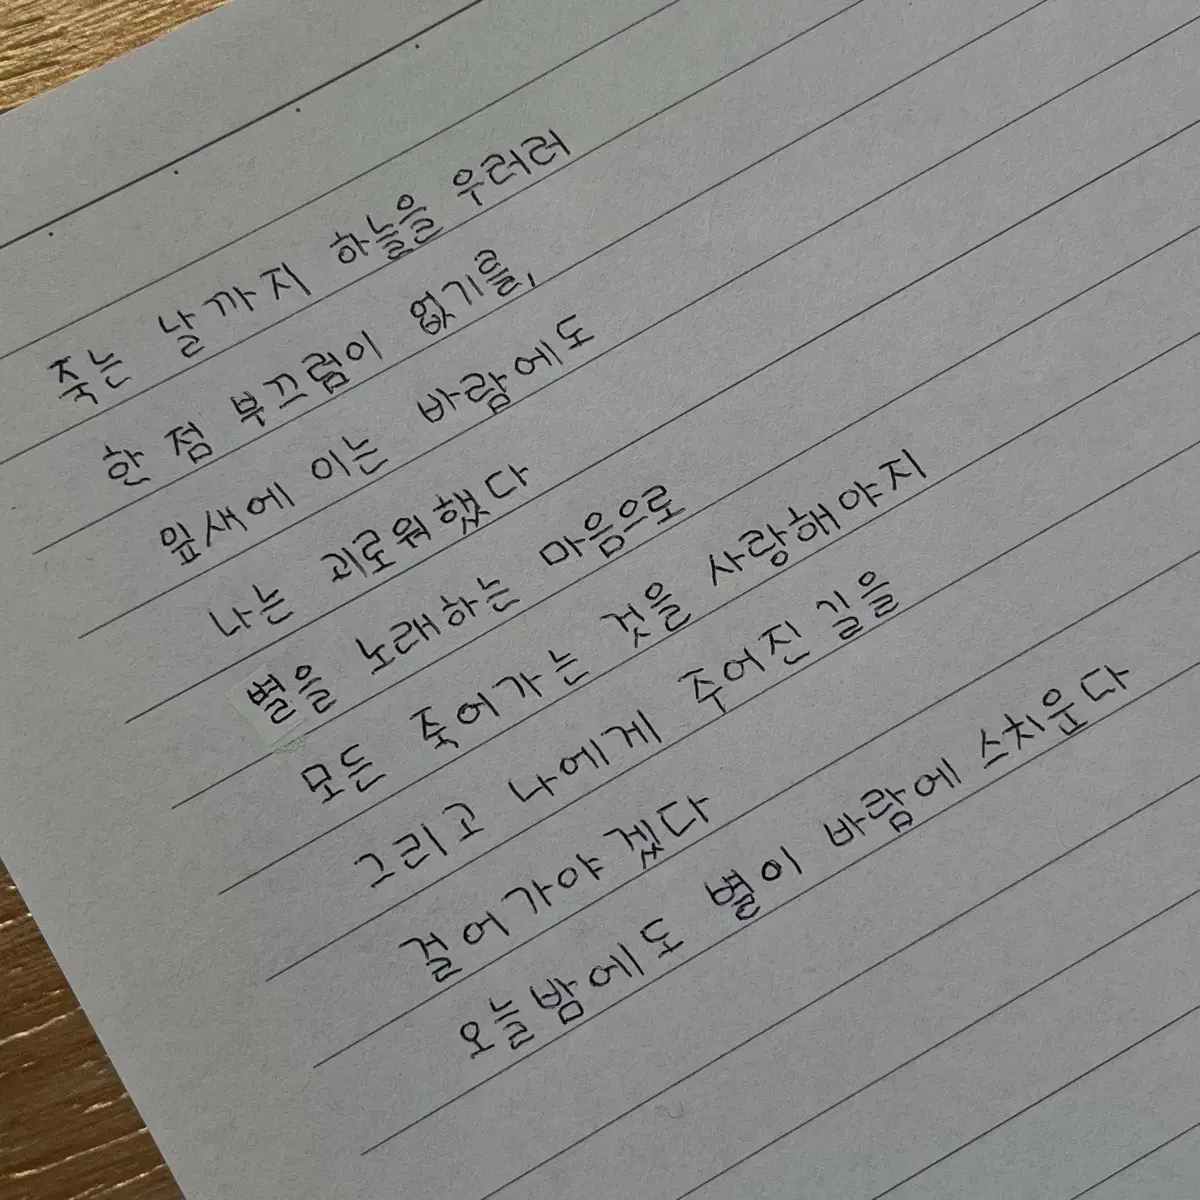 죽는 날까지 하늘을 우러러
한 점 부끄럼이 없기를,
잎새에 이는 바람에도
나는 괴로워했다
별을 노래하는 마음으로
모든 죽어가는 것을 사랑해야지
그리고 나에게 주어진 길을
걸어가야겠다
오늘밤에도 별이 바람에 스치운다